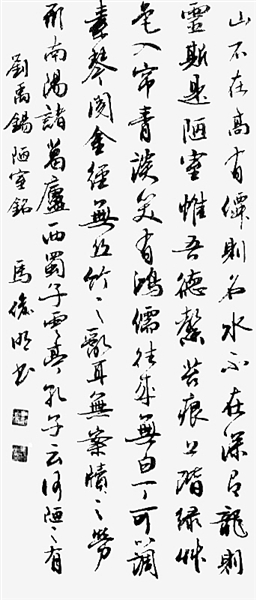 山不在高有僊則名水不在深有龍則
靈斯是陋室惟吾德馨苔痕上階綠艸
色入帘青談笑有鴻儒往來無白丁可以調
素琴閱金經無丝竹之亂耳無案牘之勞
形南陽諸葛廬西蜀子雲亭孔子云何陋之有
劉禹錫陋室銘 馬明书